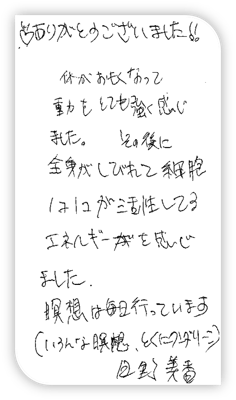 ありがとうございました!!
体がおもくなって
動もとても強く感じ
ました。 その後に
全身がしびれて細胞
1コ1コが活性してる
エネルギーを感じ
ました.
瞑想は毎日行っています
(いろんな瞑想、とくにクンダリーニ)